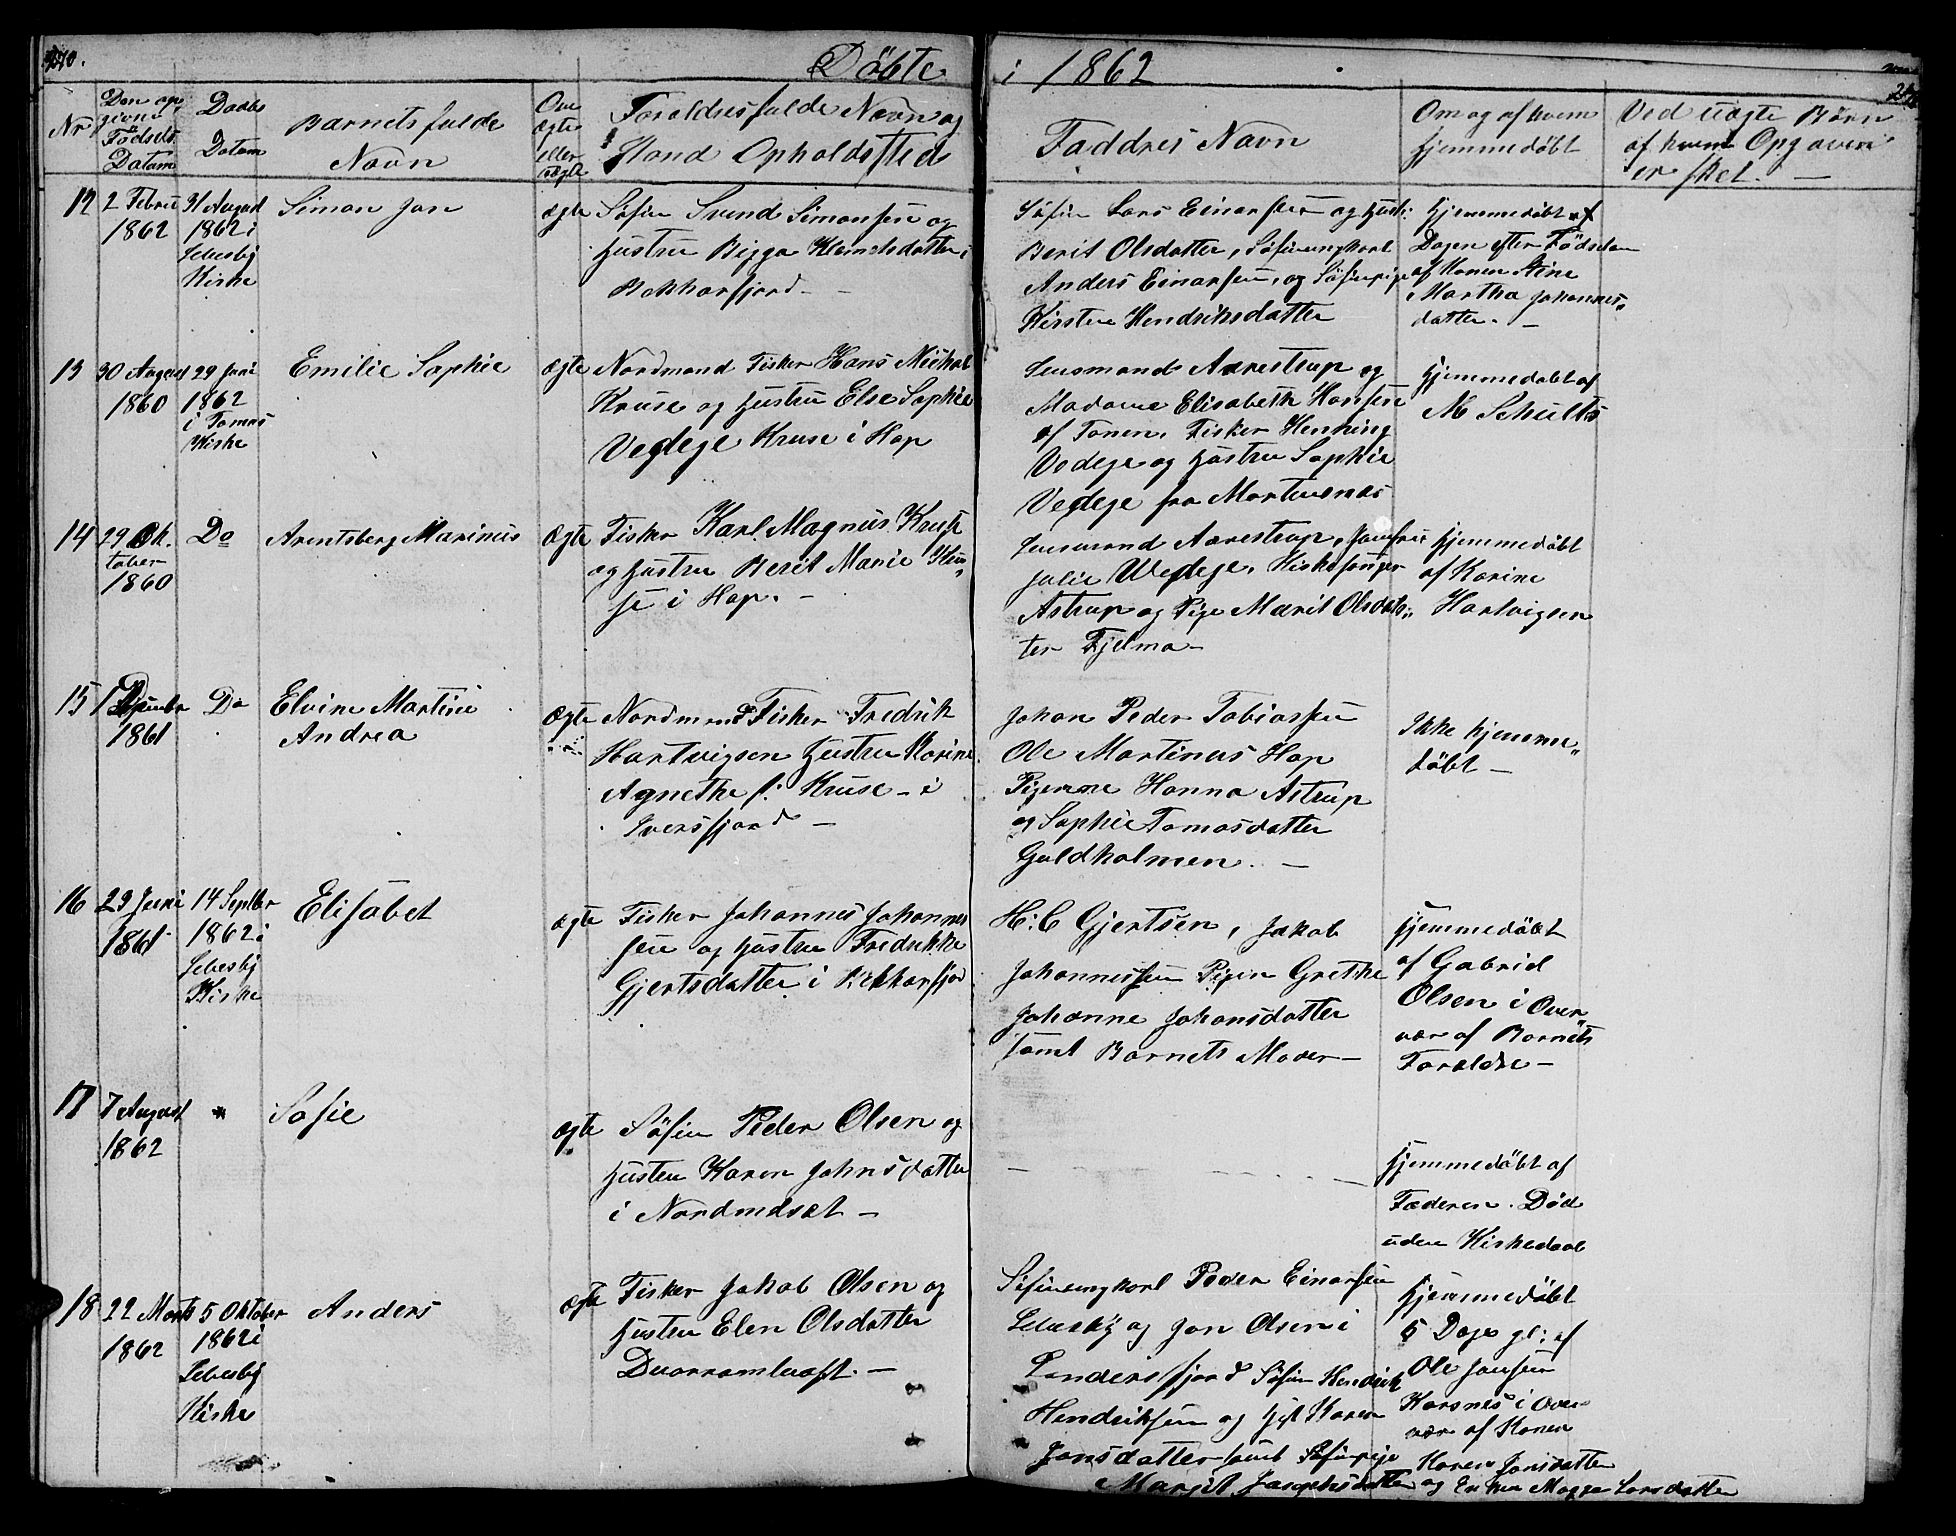 Döbte i 1862
Nr
Den op-
givne
Födsels
Datum
Daabs
Datum
Barnets fulde
Navn
Om
ægte
eller
uægte
Foraldres fulde Navn og
Stand Opholdssted
Faddres Navn
Om og af hvem
hjemmedöbt
Ved uægte Börn
af hvem Opgaven
er sket. —
12
2 Febru
1862
31 August
1862 i
Lebesby
Kirke
Simon Jon
ægte
Söfin Svend Simonsen og
Hustru Bigga Klemetsdatter i
Bekkarfjord. —
Söfin Lars Einarsen og Hust:
Berit Olsdatter, Söfinungkarl
Anders Einarsen, og Söfinpige
Kirsten Hendriksdatter
Hjemmedöbt af
Dagen efter Födselen
af Konen Stine
Martha Johannes„
datter. —
13
30 August
1860
29 Juni
1862
i Tomas
Kirke
Emilie Sophie
ægte
Nordmand Fisker Hans Nickol
Kruse og Hustru Else Sophie
Vedege Kruse i Hop
Lensmand Aarestrup og
Madame Elisabeth Hansen
af Tanen. Fisker Henning
Vedege og Hustru Sophie
Vedege fra Martensnæs
Hjemmedöbt af
M Schults
14
29 Ok.
tober
1860
Do
Arentsberg Marinus
ægte
Fisker Karl Magnus Kruse
og Hustru Berit Marie Kru„
se i Hop. —
Lensmand Aarestrup, Jomfru
Julie Wedege, Kirkesanger
Astrup og Pige Marit Olsdat„
ter Fjelma —
Hjemmedöbt
af Karine
Hartvigsen
15
1 December
1861
Do
Elvine Martine
Andrea
ægte
Nordmand Fisker Fredrik
Hartvigsen Hustru Karine
Agnethe f: Kruse — i
Iversfjord —
Johan Peder Tobiassen
Ole Martinus Hop
Pigerne Hanna Astrup
og Sophie Tomasdatter
Guldholmen. —
Ikke hjemme„
döbt —
16
29 Juni
1861
14 Septbr
1862 i
Lebesby
Kirke
Elisabet
ægte
Fisker Johannes Johannes
sen og Hustru Fredrikke
Gjertsdatter i Bekkarfjor
H: C Gjertsen, Jakob
Johannessen Pigen Grethe
Johanne Johansdatter
samt Barnets Moder —
Hjemmedöbt
af Gabriel
Olsen i Over„
vær af Barnets
Foreldre —
17
7 August
1862
"
Sofie
ægte
Söfin Peder Olsen og
Hustru Karen Johnsdatter
i Nordmdset —
—
Hjemmedöbt af
Faderen. Död
uden Kirkedaab
18
22 Marts
1862
5 Oktober
1862 i
Lebesby
Kirke
Anders
ægte
Fisker Jakob Olsen og
Hustru Elen Olsdatter
Söfinungkarl Peder Einarsen
Lebesby og Jon Olsen i
Landersfjord Söfin Hendrik
Hendriksen og Hst Karen
Jonsdatter samt Söfinpige
Marit Josephsdatter
Hjemmedöbt
5 Dage gl: af
Ole Jonsen
Karsnes i Over
vær af Konen
Karen Jonsdatter
og Enken Magga Larsdatter